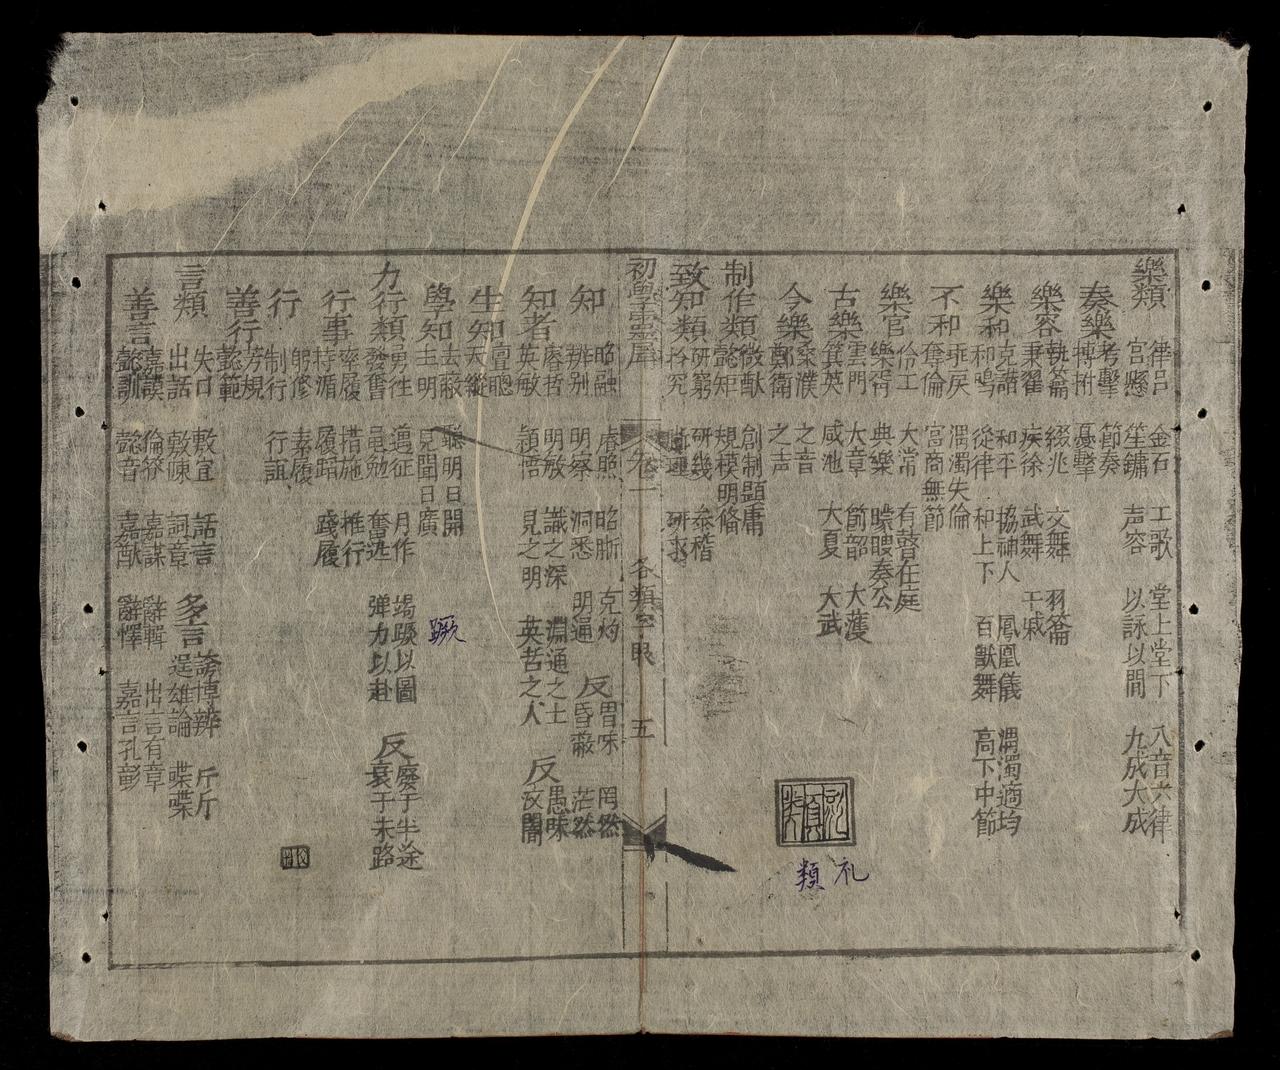 樂類
律呂 金石 工歌 堂上堂下 八音六律
宮懸 笙鏞 声容 以詠以間 九成大成
奏樂
考擊 節奏
搏拊 戞擊
樂容
執籥 綴兆 文舞 羽籥
秉翟 疾徐 武舞 干戚
樂和
克諧 和平 協神人 鳳凰儀 濁適均
和鳴 從律 和上下 百獸舞 高下中節
不和
乖戾 濁失倫
奪倫 宮商無節
樂官
伶工 大常 有瞽在庭
樂胥 典樂 矇瞍奏公
古樂
雲門 大章 簫韶 大濩
咸池 大夏 大武
今樂
桑濮 之音
鄭衛 之声
制作類
創制顯庸
懿矩 規模明備
致知類
研窮 研幾 叅稽
研求
初學靈犀
卷一
各類字眼
五
知
昭融 睿照 昭晣 克灼 反 昧 罔然
辨別 明察 洞悉 明通 昏蔽 茫然
知者
睿哲 明放 識之深 淵通之士 反 愚昧
英敏 穎悟 見之明 英哲之人
生知
亶聰
天縱
學知
去蔽 聰明日開
主明 見聞日廣
力行類
勇往 邁征 月作 竭蹶以圖 反 廢于半途
發奮 黽勉 奮迅 彈力以赴 衰于末路
行事
率履 措施 推行
持循 履蹈 踐履
行
躬修 素履
制行 行誼
善行
芳規
懿範
言類
失口 敷宣 話言 多言 誇博辨 斤斤
出話 敷陳 詞章 逞雄論 喋喋
善言
嘉謨 倫 嘉謀 辭輯 出言有章
懿訓 懿音 嘉猷 辭懌 嘉言孔彰
蹶
礼類